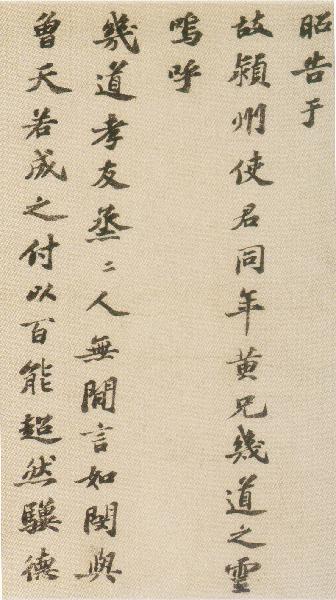 昭告于
故潁州使君同年黃兄幾道之靈
嗚呼
幾道孝友蒸〻人無閒言如閔與
曾天若成之付以百能超然驥德